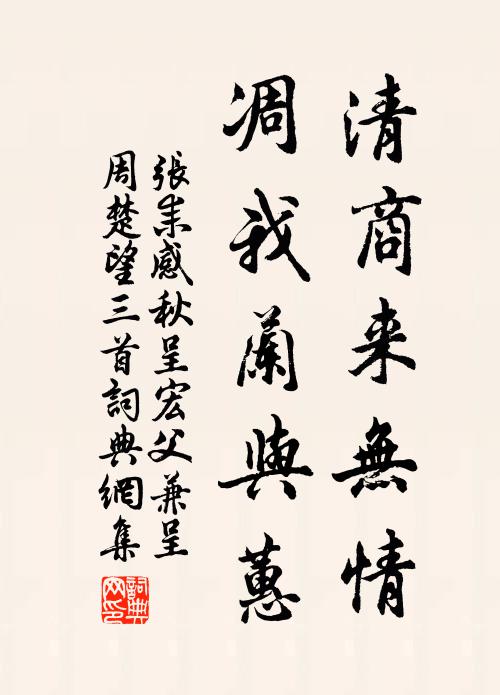 清商来無情
凋我蘭與蕙
張耒感秋呈宏父兼呈
周楚望三首詞典網集
詞典
网印